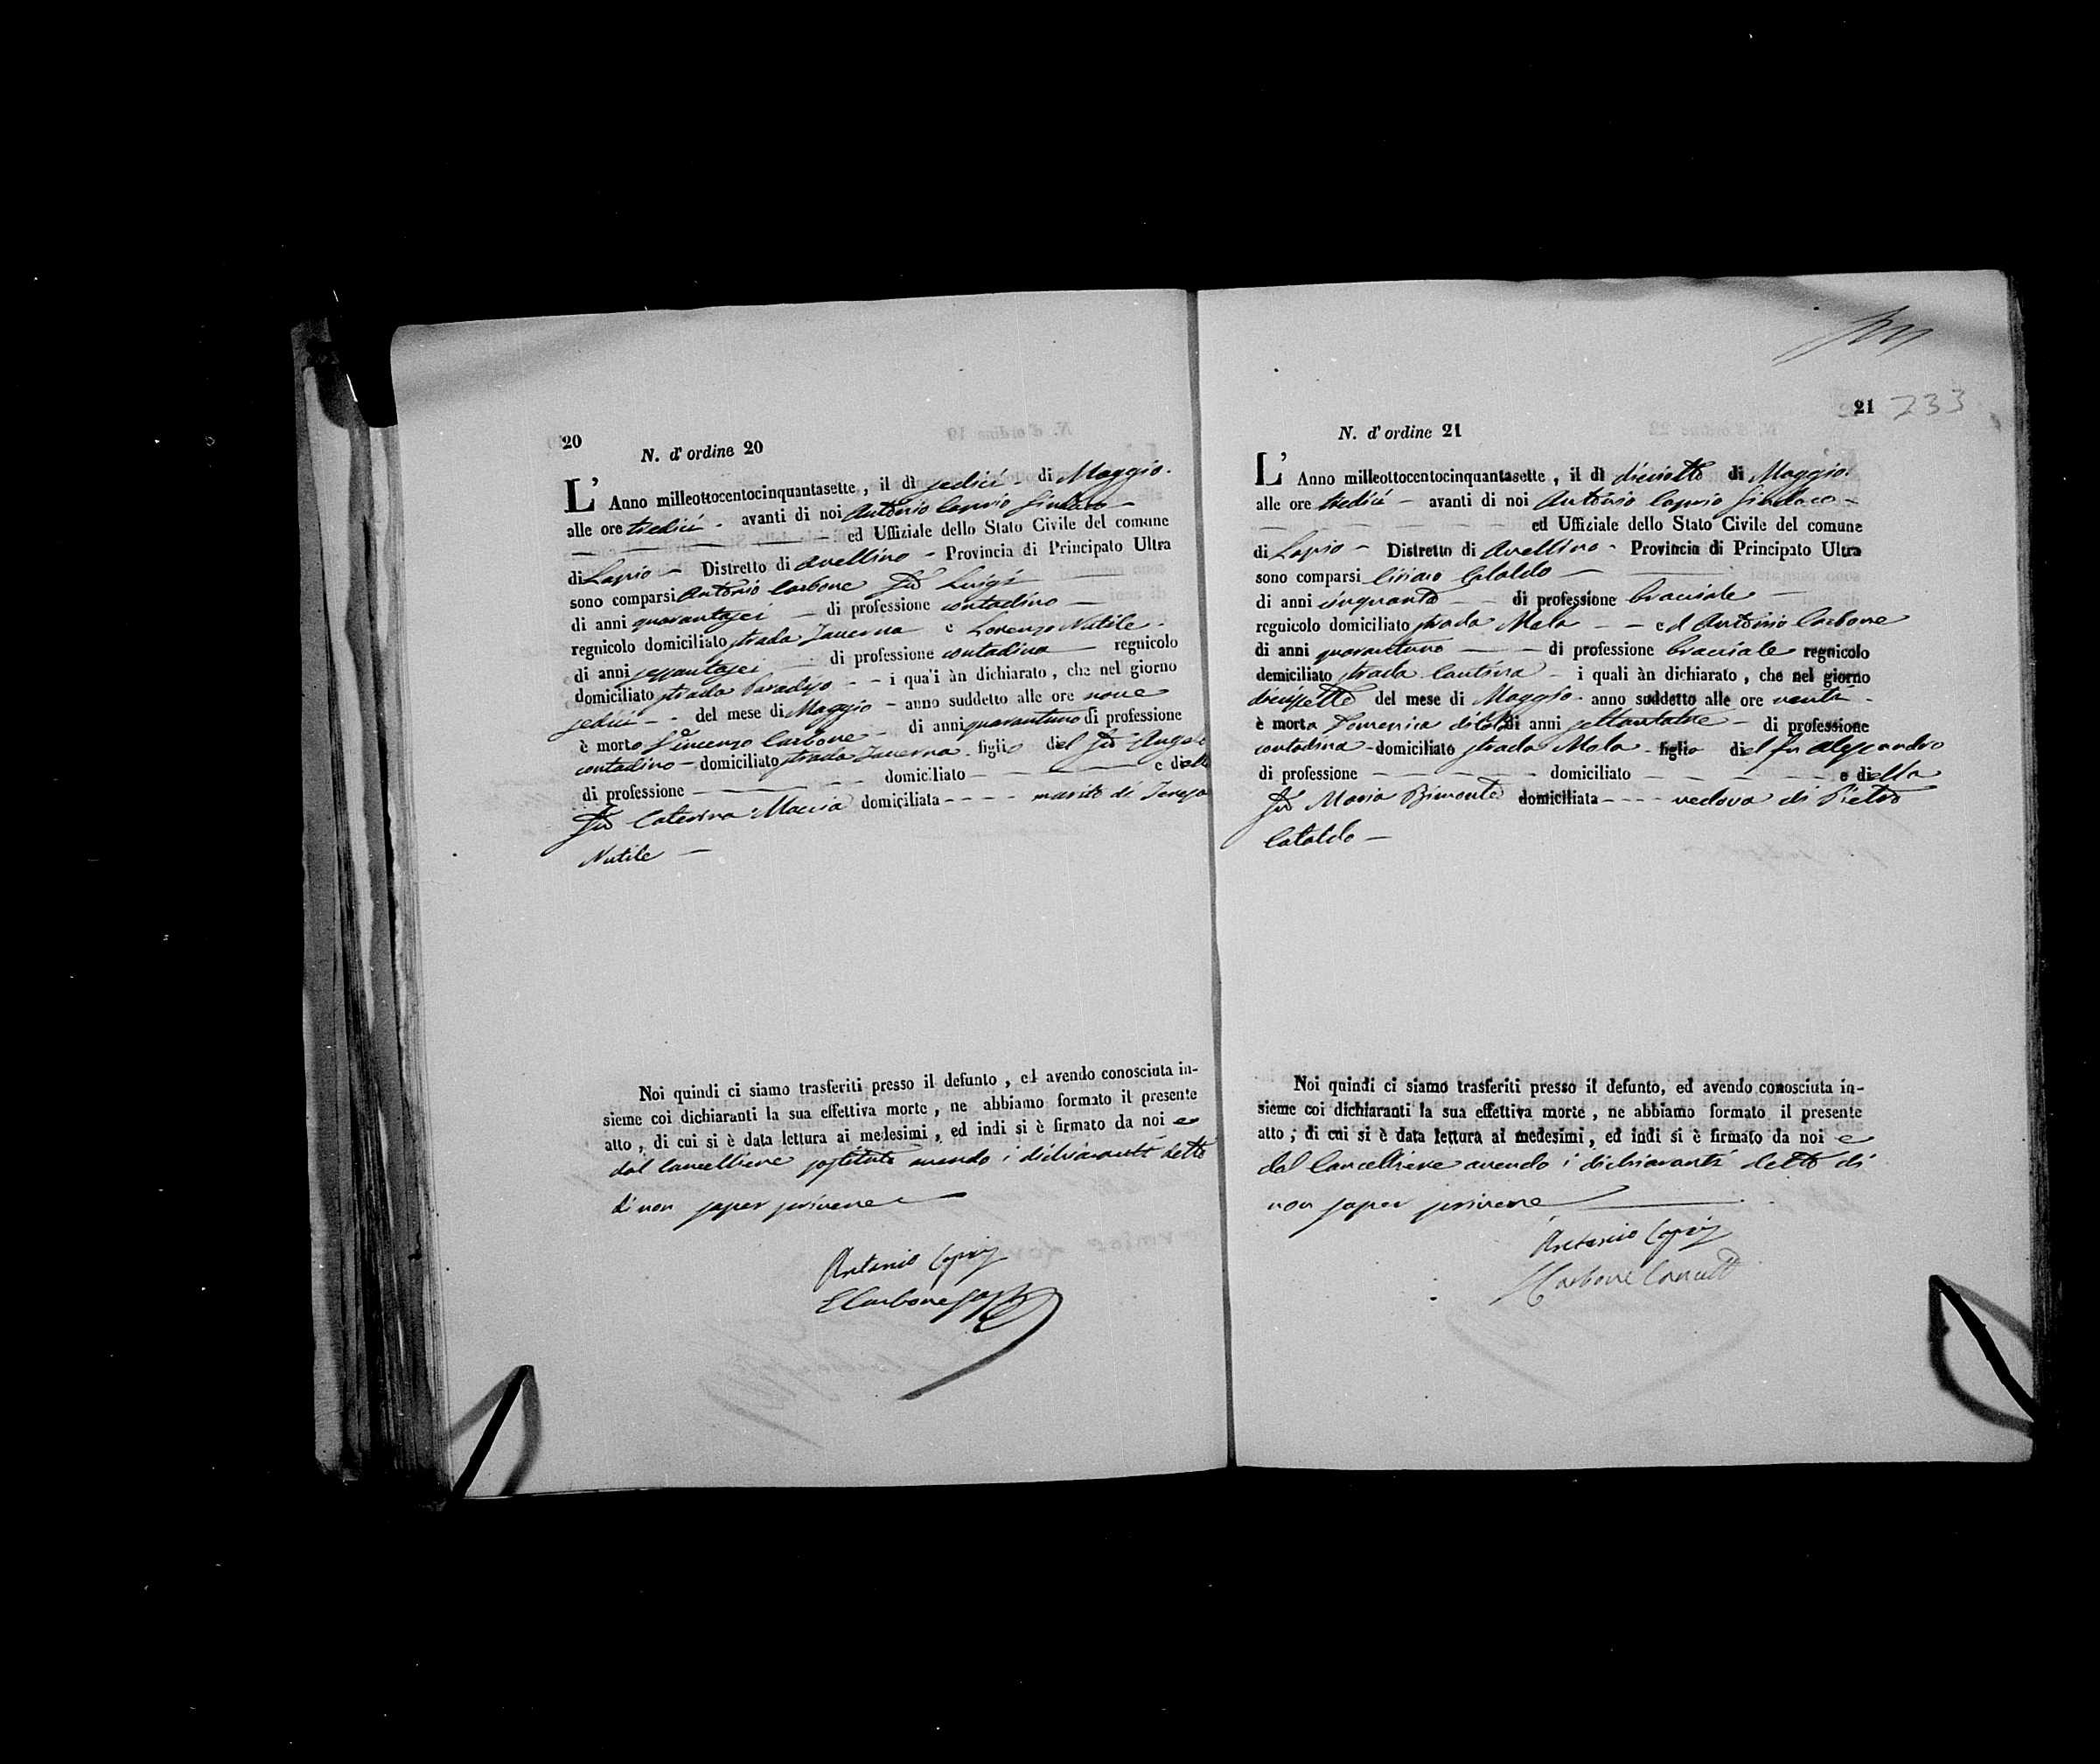 20
N. d' ordine 20
L' Anno milleottocentocinquantasette, il dì sedici - di Maggio.
alle ore tredici - avanti di noi Antonio Caprio Sindaco
ed Uffiziale dello Stato Civile del comune
di Lapio - Distretto di Avellino - Provincia di Principato Ultra
sono comparsi Antonio Carbone fu Luigi
di anni quarantasei - di professione contadino -
regnicolo domiciliato strada Taverna e Lorenzo Nutile -
di anni sessantasei - di professione contadino - regnicolo
domiciliato strada Paradiso - - i qua'i àn dichiarato, che nel giorno
sedici - - del mese di Maggio - anno suddetto alle ore nove
è morto Vincenzo Carbone - di anni quarantuno di professione
contadino - domiciliato strada Taverna - figlio del fu Angelo
di professione - - - domiciliato - - - e della
fu Caterina Maccia domiciliata - - - - marito di Teresa
Nutile -
Noi quindi ci siamo trasferiti presso il defunto, ed avendo conosciuta in-
sieme coi dichiaranti la sua effettiva morte, ne abbiamo formato il presente
atto, di cui si è data lettura ai medesimi, ed indi si è firmato da noi e
dal Cancelliere sostituto avendo i dichiaranti detto
di non saper scrivere
Antonio Caprio
Carbone
21 233
N. d' ordine 21
L' Anno milleottocentocinquantasette, il dì diciotto di Maggio.
alle ore tredici - avanti di noi Antonio Caprio Sindaco -
ed Uffiziale dello Stato Civile del comune
di Lapio - Distretto di Avellino - Provincia di Principato Ultra
sono comparsi Ciriaco Cataldo -
di anni cinquanta - - di professione bracciale -
regnicolo domiciliato strada Mala - - ed Antonio Carbone
di anni quarantuno - - di professione bracciale regnicolo
demiciliato strada Cantina - i quali àn dichiarato, che nel giorno
diciassette del mese di Maggio - anno suddetto alle ore venti -
è morta Domenica di anni settantatre - di professione
contadina - domiciliato strada Mala - figlia del fu Alessandro
di professione - - - domiciliato - - - e della
fu Maria Bimonte domiciliata - - - - vedova di Pietro
Cataldo -
Noi quindi ci siamo trasferiti presso il defunto, ed avendo conosciuta in-
sieme coi dichiaranti la sua effettiva morte, ne abbiamo formato il presente
atto; di cui si è data lettura ai medesimi, ed indi si è firmato da noi e
dal Cancelliere avendo i dichiaranti detto di
non saper scrivere
Antonio Caprio
Carbone